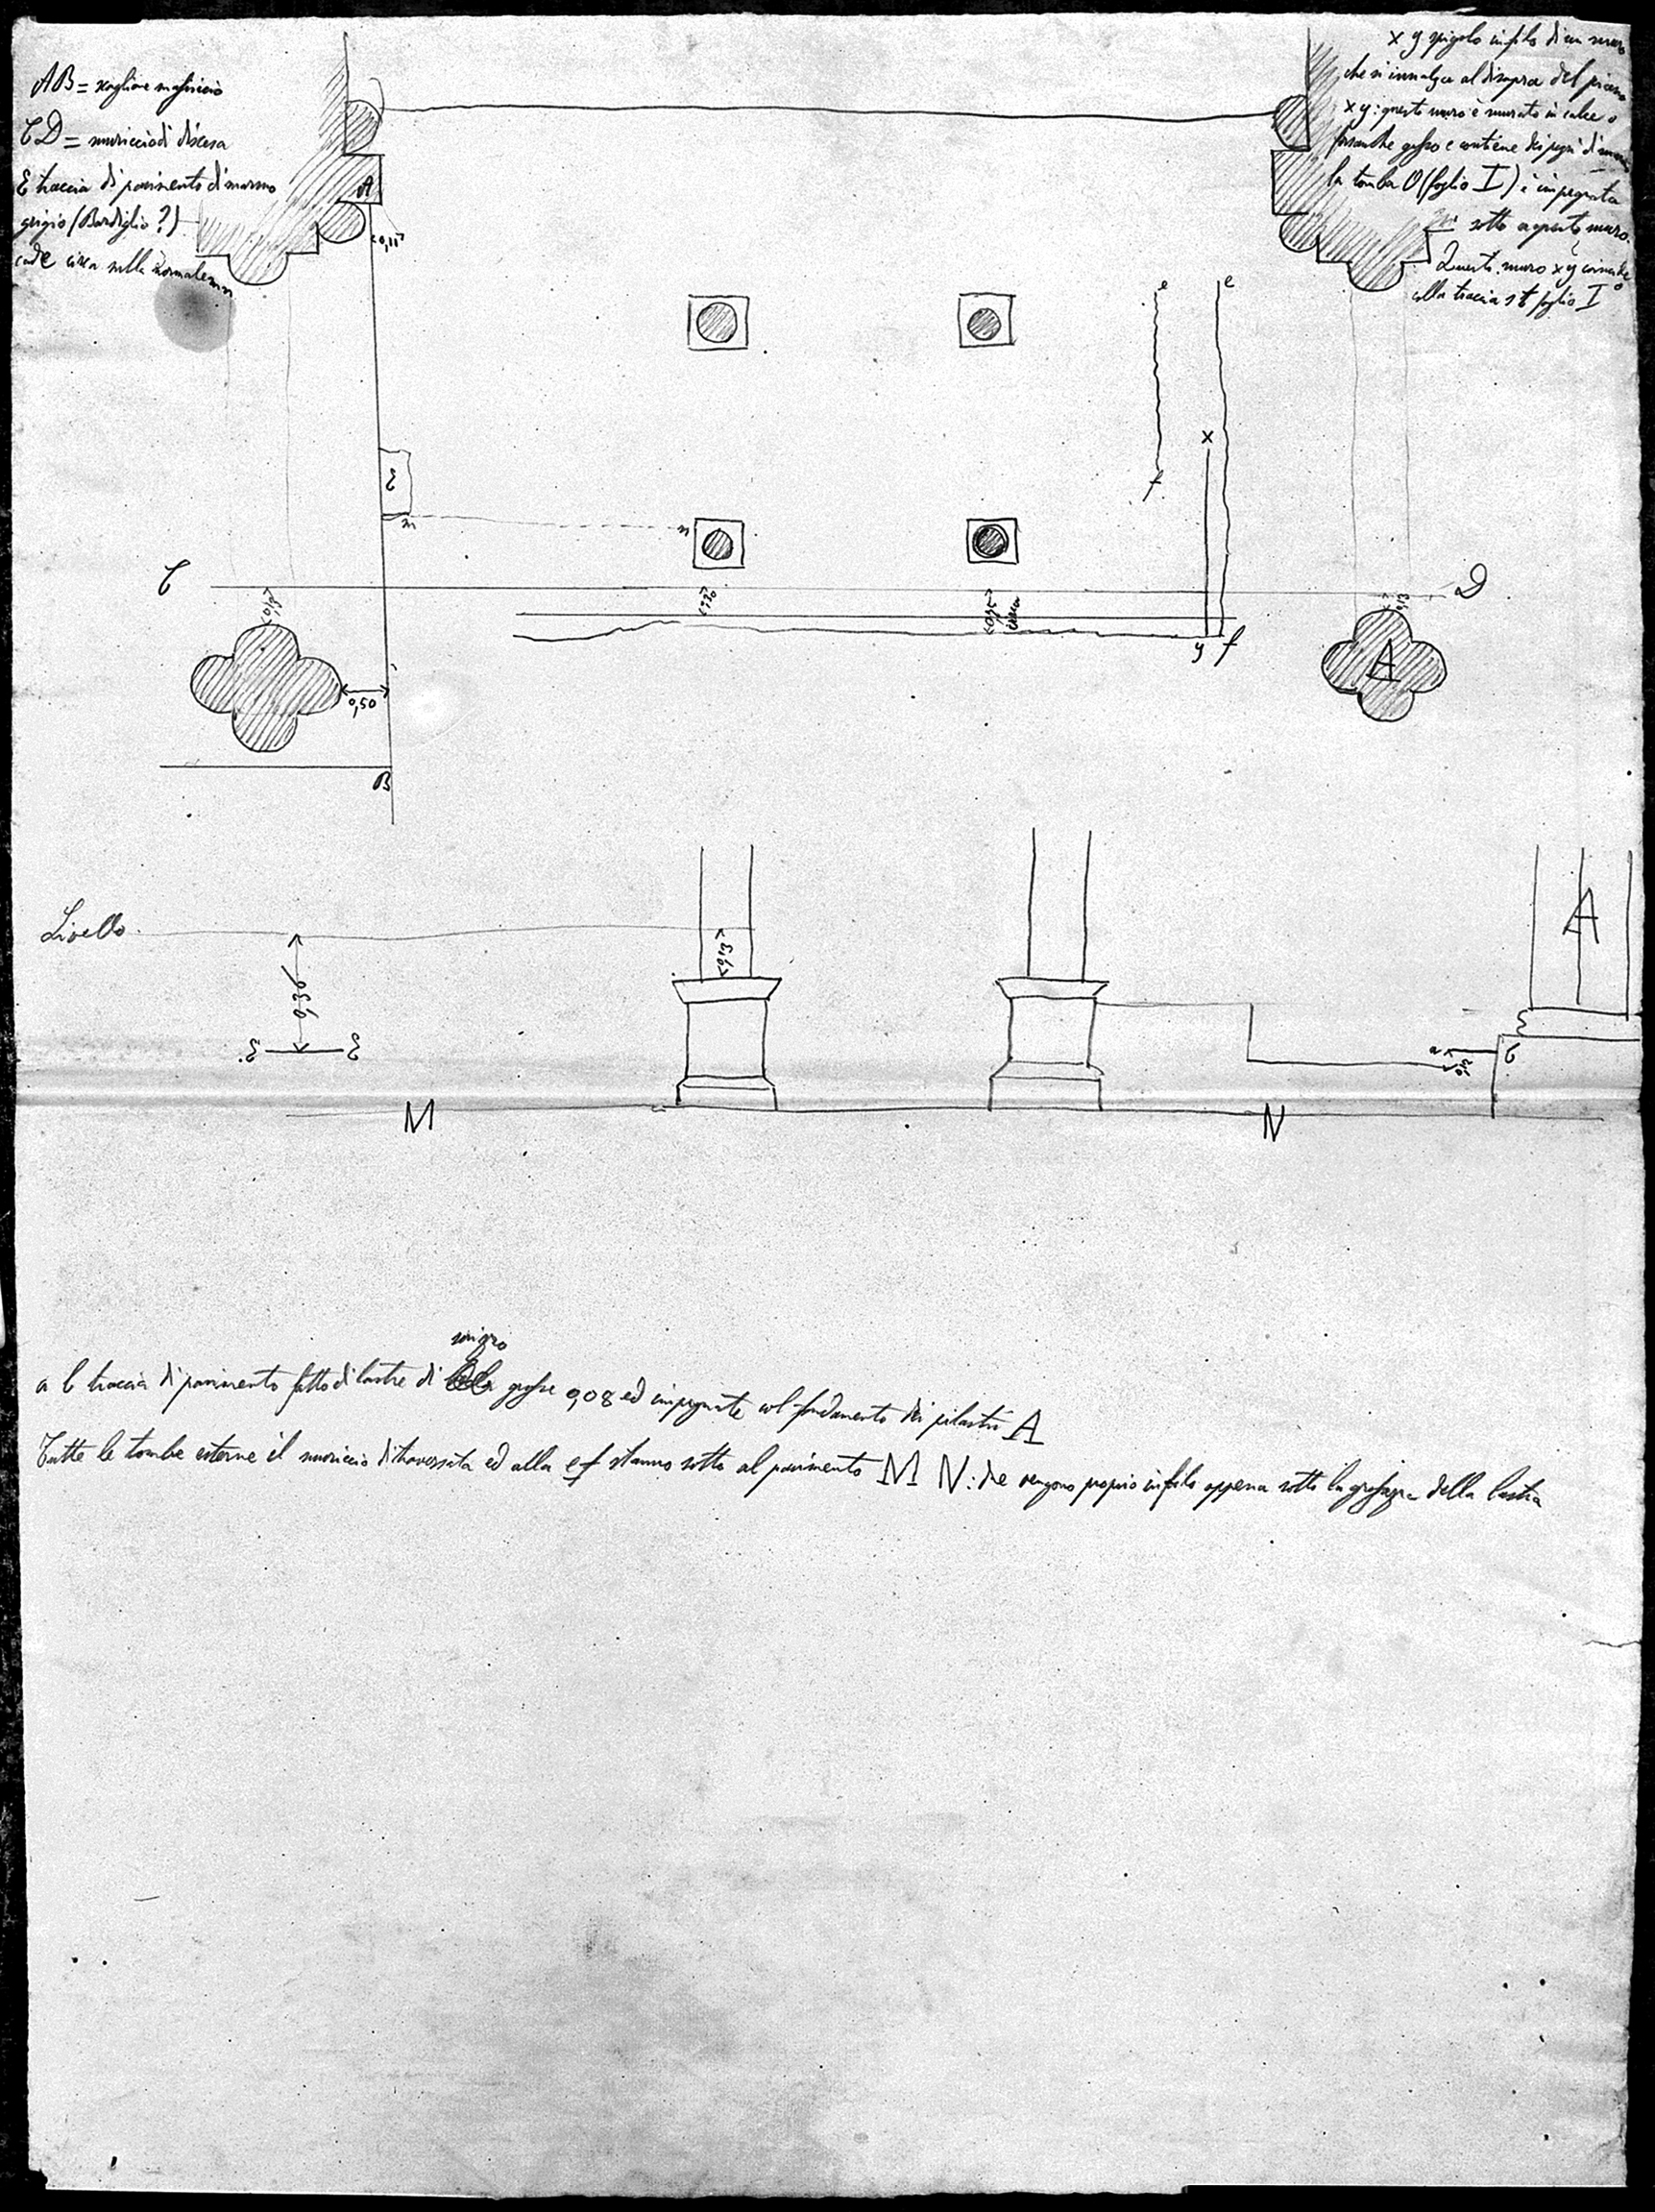 AB = scaglione massiccio
CD = muriccio di discesa
E traccia di pavimento di marmo
grigio (Bardiglio?)
cade circa sulla normale mn
x y spigolo in filo di un muro
che si innalza al disopra del piano
xy: questo muro è murato in calce o
forse anche gesso e contiene dei pezzi di
la tomba O (foglio I) è impegnata
sotto a questo muro.
Questo muro xy
colla traccia st foglio I°
A
0,15
e
e
x
E
f
m
n
C
D
0,13
0,30
0,95
circa
0,13
y
f
A
0,50
B
Livello
0,13
A
0,30
E
E
a
b
M
N
macigno
a b traccia di pavimento fatto di lastre di grosse 0,08 ed impegnate col fondamento dei pilastri A
Tutte le tombe esterne il muriccio di traversata ed alla ef stanno sotto al pavimento M N: che vengono proprio in filo appena sotto la grossezza della lastra